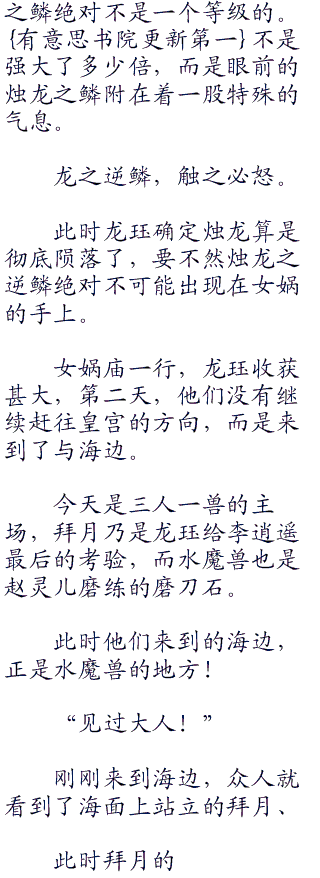 之鳞绝对不是一个等级的。
{有意思书院更新第一}不是
强大了多少倍，而是眼前的
烛龙之鳞附在着一股特殊的
气息。
龙之逆鳞，触之必怒。
此时龙珏确定烛龙算是
彻底陨落了，要不然烛龙之
逆鳞绝对不可能出现在女娲
的手上。
女娲庙一行，龙珏收获
甚大，第二天，他们没有继
续赶往皇宫的方向，而是来
到了与海边。
今天是三人一兽的主
场，拜月乃是龙珏给李逍遥
最后的考验，而水魔兽也是
赵灵儿磨练的磨刀石。
此时他们来到的海边，
正是水魔兽的地方！
“见过大人！”
刚刚来到海边，众人就
看到了海面上站立的拜月、
此时拜月的